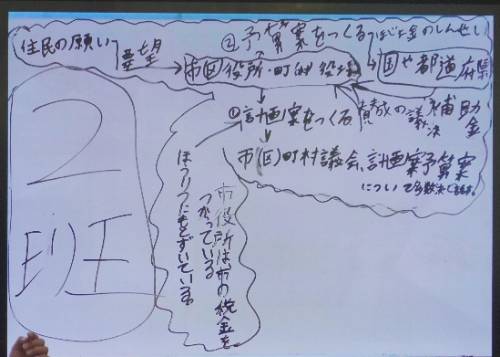 住民の願い
要望
②予算案をつくる
ほじょ金のしんせい
市(区)役所・町(村)役場
国や都道府県
①計画案をつくる
賛成の議決
補助金
市(区)町村議会、計画案予算案
について多数決で決めます。
市役所は市の税金を
つかっている
ほうりつにもとずいている。
2班